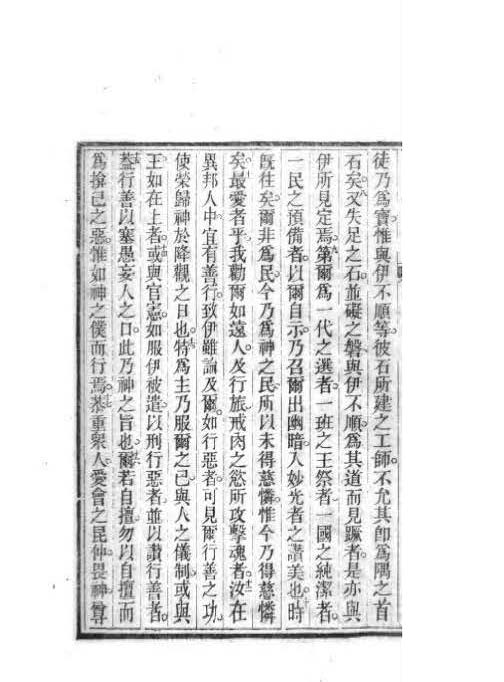 徒乃爲寶惟與伊不順等彼石所建之工師不允其卽爲隅之首
石矣又失足之石並礙之磐與伊不順爲其道而見蹶者是亦與
伊所見定焉第爾爲一代之選者一班之王祭者一國之純潔者
一民之預備者以爾自示乃召爾出幽暗入妙光者之讃美也時
旣往矣爾非爲民今乃爲神之民所以未得慈憐惟今乃得慈憐
矣最愛者乎我勸爾如遠人及行旅戒肉之慾所攻擊魂者汝在
異邦人中宜有善行致伊雖論及爾如行惡者可見爾行善之功
使榮歸神於降觀之日也特爲主乃服爾之已與人之儀制或與
王如在上者或與官憲如服伊被遣以刑行惡者並以讃行善者
葢行善以塞愚妄人之口此乃神之旨也爾若自擅勿以自擅而
爲揜己之惡惟如神之僕而行焉恭重衆人愛會之昆仲畏神尊